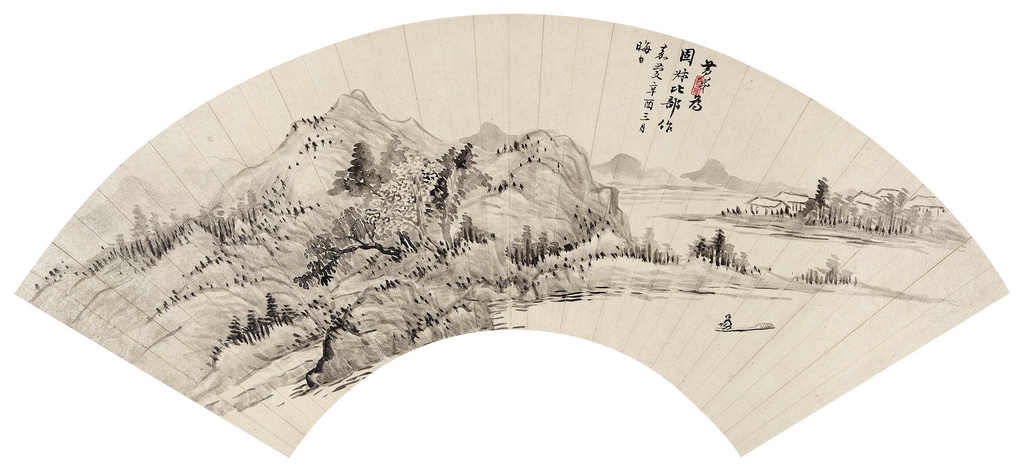 芳為
固叔比部作
嘉慶辛酉三月
晦日